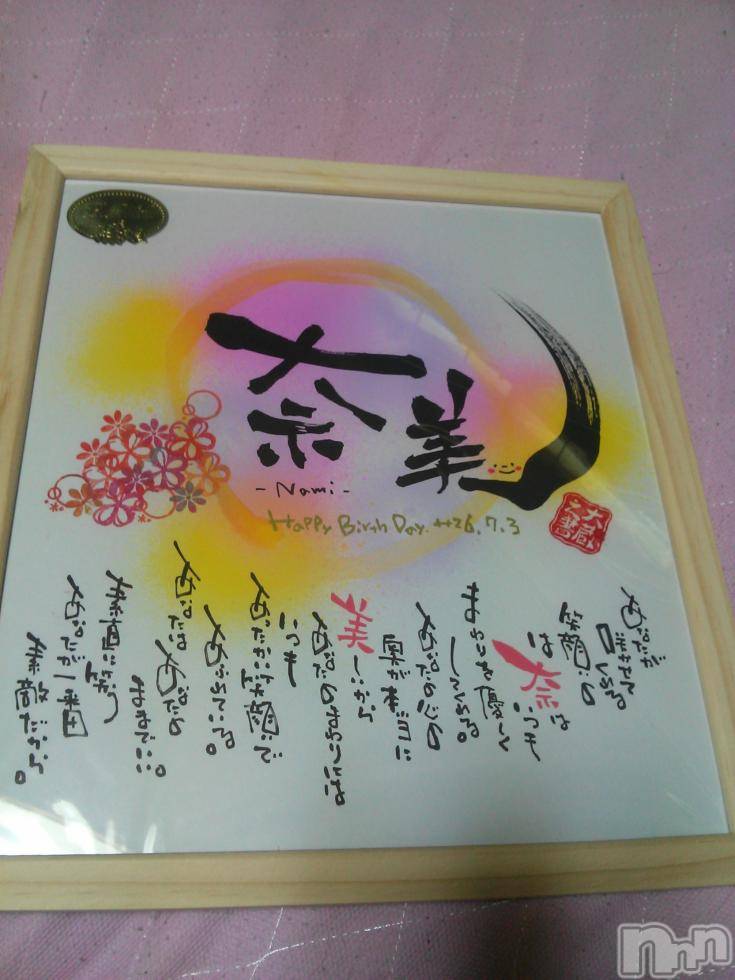 奈美
-Nami-
Happy Birth Day. H26.7.3
あなたが
咲かせて
くれる
笑顔の
花は
奈は
いつも
まわりを優しく
してくれる。
あなたの心の
奥が本当に
美しいから
あなたのまわりには
いつも
あたたかい笑顔で
あふれている。
あなたは
あなたの
ままでいい。
素直に笑う
あなたが一番
素敵だから。
nnn